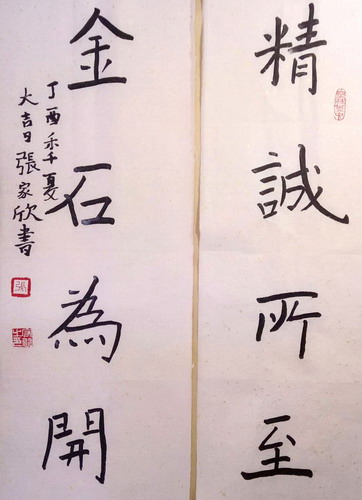 精誠所至
金石為開
丁酉秊夏
大吉日張家欣書